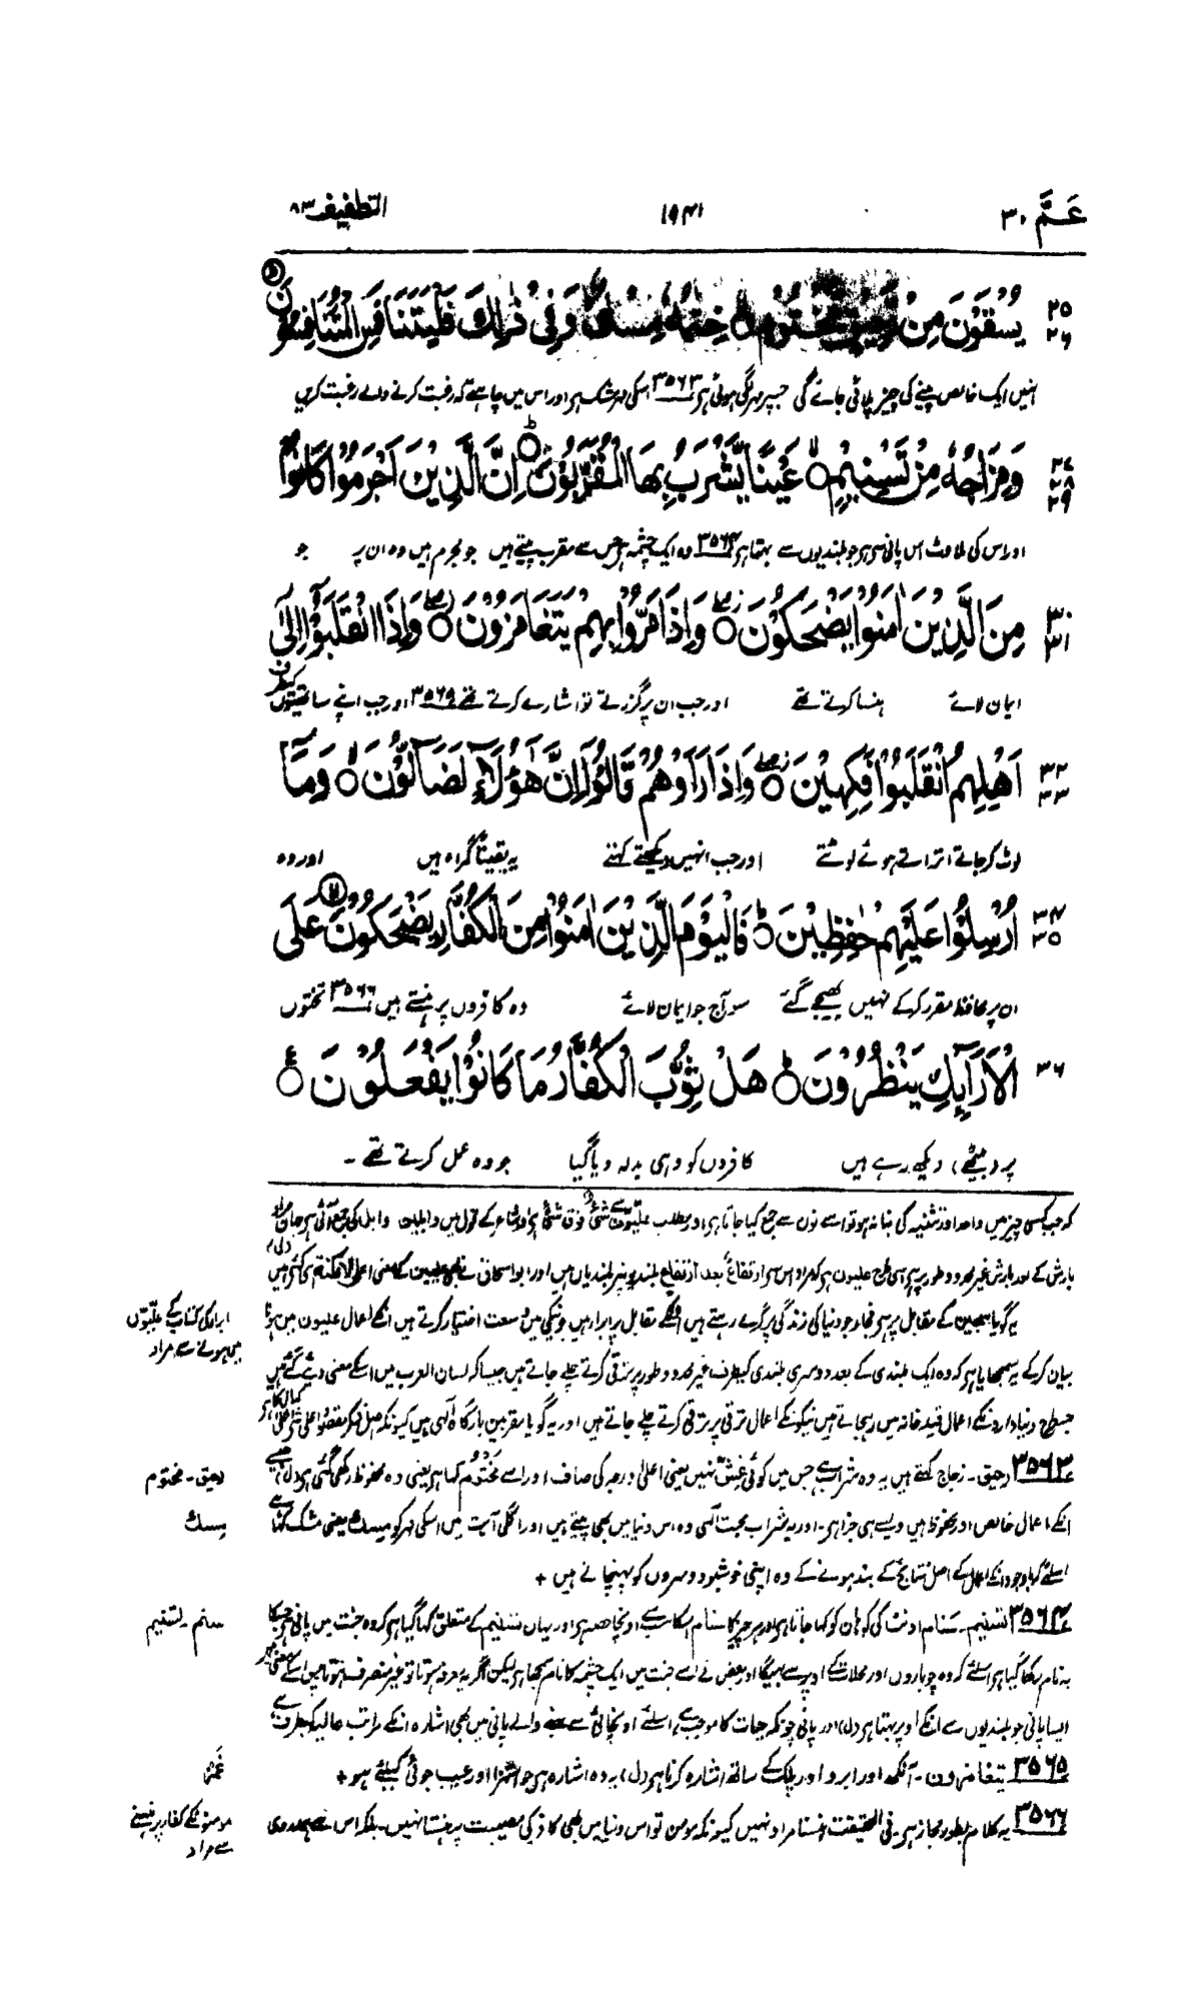 عَمَّ ۳۰
۱۹۴۱
التطفيف ۸۳
۲۵ ۲۶
يُسْقَوْنَ مِنْ رَّحِيْقٍ مَّخْتُوْمٍ ۙ خِتٰمُهٗ مِسْكٌ ؕ وَفِيْ ذٰلِكَ فَلْيَتَنَافَسِ الْمُتَنَافِسُوْنَ
انہیں ایک خالص پینے کی چیز پلائی جائے گی جسپر مہر لگی ہوئی ہر ۳۵۶۳ اسکی مہر مشک ہر اور اس میں چاہئے کہ رغبت کرنے والے رغبت کریں
۲۷ ۲۸ ۲۹
وَمِزَاجُهٗ مِنْ تَسْنِيْمٍ ۙ عَيْنًا يَّشْرَبُ بِهَا الْمُقَرَّبُوْنَ ؕ اِنَّ الَّذِيْنَ اَجْرَمُوْا كَانُوْا
اور اس کی ملاوٹ اس پانی سے ہر جو بلندیوں سے بہتا ہر ۳۵۶۴ وہ ایک چشمہ ہر جس سے مقرب پیتے ہیں جو مجرم ہیں وہ ان پر جو
۳۰ ۳۱
مِنَ الَّذِيْنَ اٰمَنُوْا يَضْحَكُوْنَ ۖ وَاِذَا مَرُّوْا بِهِمْ يَتَغَامَزُوْنَ ۖ وَاِذَا انْقَلَبُوْٓا اِلٰٓى
ایمان لائے ہنسا کرتے تھے اور جب ان پر گزرتے تو اشارے کرتے تھے ۳۵۶۵ اور جب اپنے ساتھیوں کیطرف
۳۲ ۳۳
اَهْلِهِمُ انْقَلَبُوْا فَكِهِيْنَ ۖ وَاِذَا رَاَوْهُمْ قَالُوْٓا اِنَّ هٰٓؤُلَآءِ لَضَآلُّوْنَ ۙ وَمَآ
لوٹ کر جاتے اتراتے ہوئے لوٹتے اور جب انہیں دیکھتے کہتے یہ یقیناً گمراہ ہیں اور وہ
۳۴ ۳۵
اُرْسِلُوْا عَلَيْهِمْ حٰفِظِيْنَ ؕ فَالْيَوْمَ الَّذِيْنَ اٰمَنُوْا مِنَ الْكُفَّارِ يَضْحَكُوْنَ عَلَى
ان پر محافظ مقرر کرکے نہیں بھیجے گئے سو آج جو ایمان لائے وہ کافروں پر ہنستے ہیں ۳۵۶۶ تختوں
۳۶
الْاَرَآئِكِ يَنْظُرُوْنَ ؕ هَلْ ثُوِّبَ الْكُفَّارُ مَا كَانُوْا يَفْعَلُوْنَ
پر (بیٹھے) دیکھ رہے ہیں کافروں کو وہی بدلہ دیا گیا جو وہ عمل کرتے تھے ۔
کہ جب کسی چیز میں واحد اور تثنیہ کی بنا نہ ہو تو اسے نون سے جمع کیا جاتا ہر اور مطلب علیّون سے شیٔ فوق شیٔ ہر اور شاعر کے قول میں وابلینا وابل کی جمع آئی ہر جہاں مراد
بارش کے بعد بارش غیر محدود طور پر ہر اسی طرح علیون ہر کہ مراد اس سے ارتفاع بعد از ارتفاع بلندیوں پر بلندیاں ہیں اور ابو اسحاق نے بھی علیین کے معنی اعلی الامکنۃ ہی کئے ہیں (ل)
یہ گویا سجین کے مقابل پر ہر فجار جو دنیا کی زندگی پر گرے رہتے ہیں انکے مقابل پر ابرار ہیں جو نیکی میں وسعت اختیار کرتے ہیں انکے اعمال علیون میں ہونا
ابرار کی کتاب کے علیّون میں ہونے سے مراد
بیان کرکے یہ سمجھایا ہر کہ وہ ایک بلندی کے بعد دوسری بلندی کیطرف غیر محدود طور پر ترقی کرتے چلے جاتے ہیں جیسا کہ لسان العرب میں اسکے معنی دئے گئے ہیں
جسطرح دنیاداروں کے اعمال قید خانہ میں رہجاتے ہیں نیکوں کے اعمال ترقی پر ترقی کرتے چلے جاتے ہیں اور یہ گویا مقربین بارگاہ الٰہی ہیں کیونکہ اصل فکر مقصود اعلیٰ
۳۵۶۳ رحیق ۔ زجاج کہتے ہیں یہ وہ شراب ہے جس میں کوئی غش نہیں یعنی اعلیٰ درجہ کی صاف اور اسے مختوم کہا ہر یعنی وہ محفوظ رکھی گئی ہر (ل) جیسے
رحیق ۔ مختوم
انکے اعمال خالص اور محفوظ ہیں ویسے ہی جزا ہر ۔ اور یہ شراب محبت الٰہی وہ اس دنیا میں بھی پیتے ہیں اور اگلی آیت میں اسکی مہر کو مسک یعنی مشک کہا ہے
مسك
اسلئے کہ باوجود انکے اعمال کے اصل نتائج کے بند ہونے کے وہ اپنی خوشبو دوسروں کو پہنچاتے ہیں +
۳۵۶۴ تسنیم ۔ سنام اونٹ کی کوہان کو کہا جاتا ہر اور ہر چیز کا سنام اسکا سب سے اونچا حصہ ہر اور یہاں تسنیم کے متعلق کہا گیا ہر کہ وہ جنت میں پانی ہر جسکا
سنم ۔ تسنیم
یہ نام رکھا گیا ہر اسلئے کہ وہ چوباروں اور محلات کے اوپر سے بہیگا اور بعض نے اسے جنت میں ایک چشمہ کا نام سمجھا ہر لیکن اگر یہ معرفہ ہوتا تو غیر منصرف ہوتا پس اسکے معنی ہیں
ایسا پانی جو بلندیوں سے انکے اوپر بہتا ہر (ل) اور پانی چونکہ حیات کا موجب ہے، اسلئے اونچائی سے بہنے والے پانی میں بھی اشارہ انکے مراتب عالیہ کیطرف ہے
۳۵۶۵ یتغامزون ۔ آنکھ اور ابرو اور پلک کے ساتھ اشارہ کرنا ہر (ل) یہ وہ اشارہ ہی جو استہزا اور عیب جوئی کیلئے ہو +
غمز
۳۵۶۶ یہ کلام بطور مجاز ہر ۔ فی الحقیقت ہنسنا مراد نہیں کیونکہ مومن تو اس دنیا میں بھی کافر کی مصیبت پر ہنستا نہیں ۔ بلکہ اس سے ہمدردی
مومنوں کے کفار پر ہنسنے سے مراد